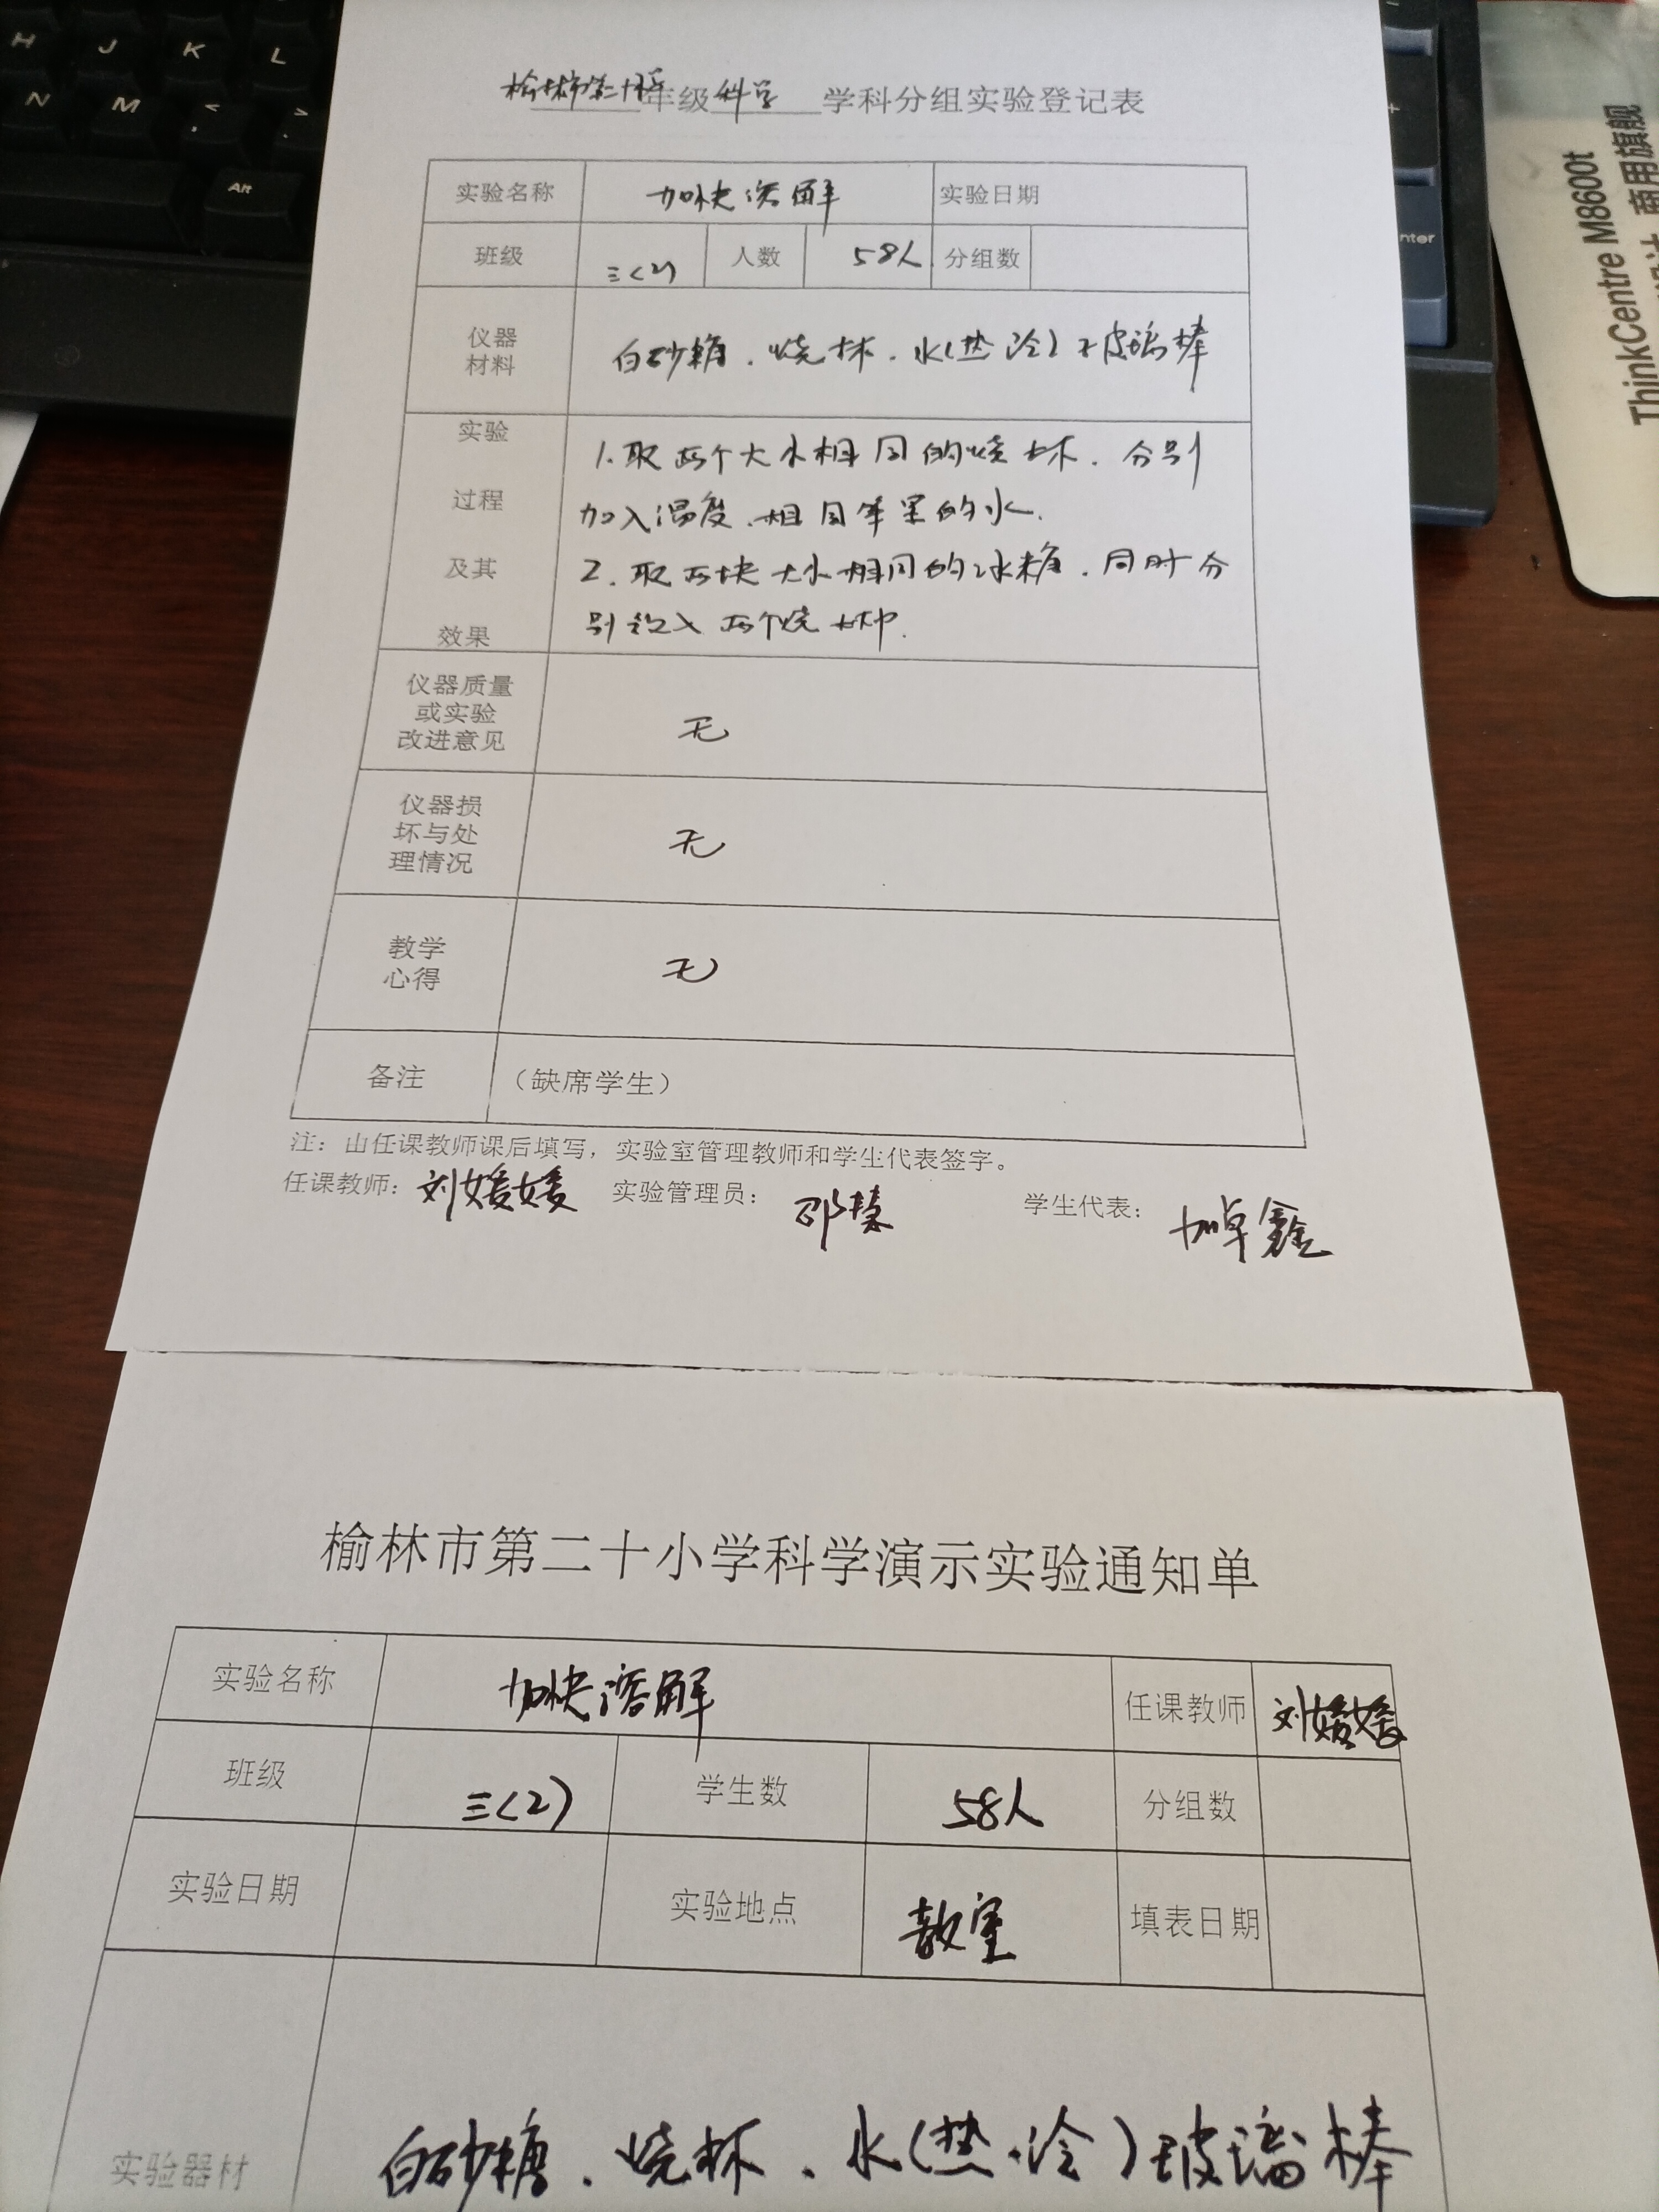 H J K L
N M < >
Alt
+
Enter
ThinkCentre M8600t
商用旗舰
榆林市第二十 年级 科学 学科分组实验登记表
实验名称 加快溶解 实验日期
班级 三(2) 人数 58人 分组数
仪器材料 白砂糖.烧杯.水(热 冷)玻璃棒
实验过程及其效果
1.取两个大小相同的烧杯.分别
加入温度.相同等量的水.
2.取两块大小相同的冰糖.同时分
别放入两个烧杯中.
仪器质量或实验改进意见 无
仪器损坏与处理情况 无
教学心得 无
备注 (缺席学生)
注:由任课教师课后填写,实验室管理教师和学生代表签字。
任课教师:刘媛媛 实验管理员:邵慧 学生代表:加卓鑫
榆林市第二十小学科学演示实验通知单
实验名称 加快溶解 任课教师 刘媛媛
班级 三(2) 学生数 58人 分组数
实验日期 实验地点 教室 填表日期
实验器材 白砂糖.烧杯.水(热.冷)玻璃棒